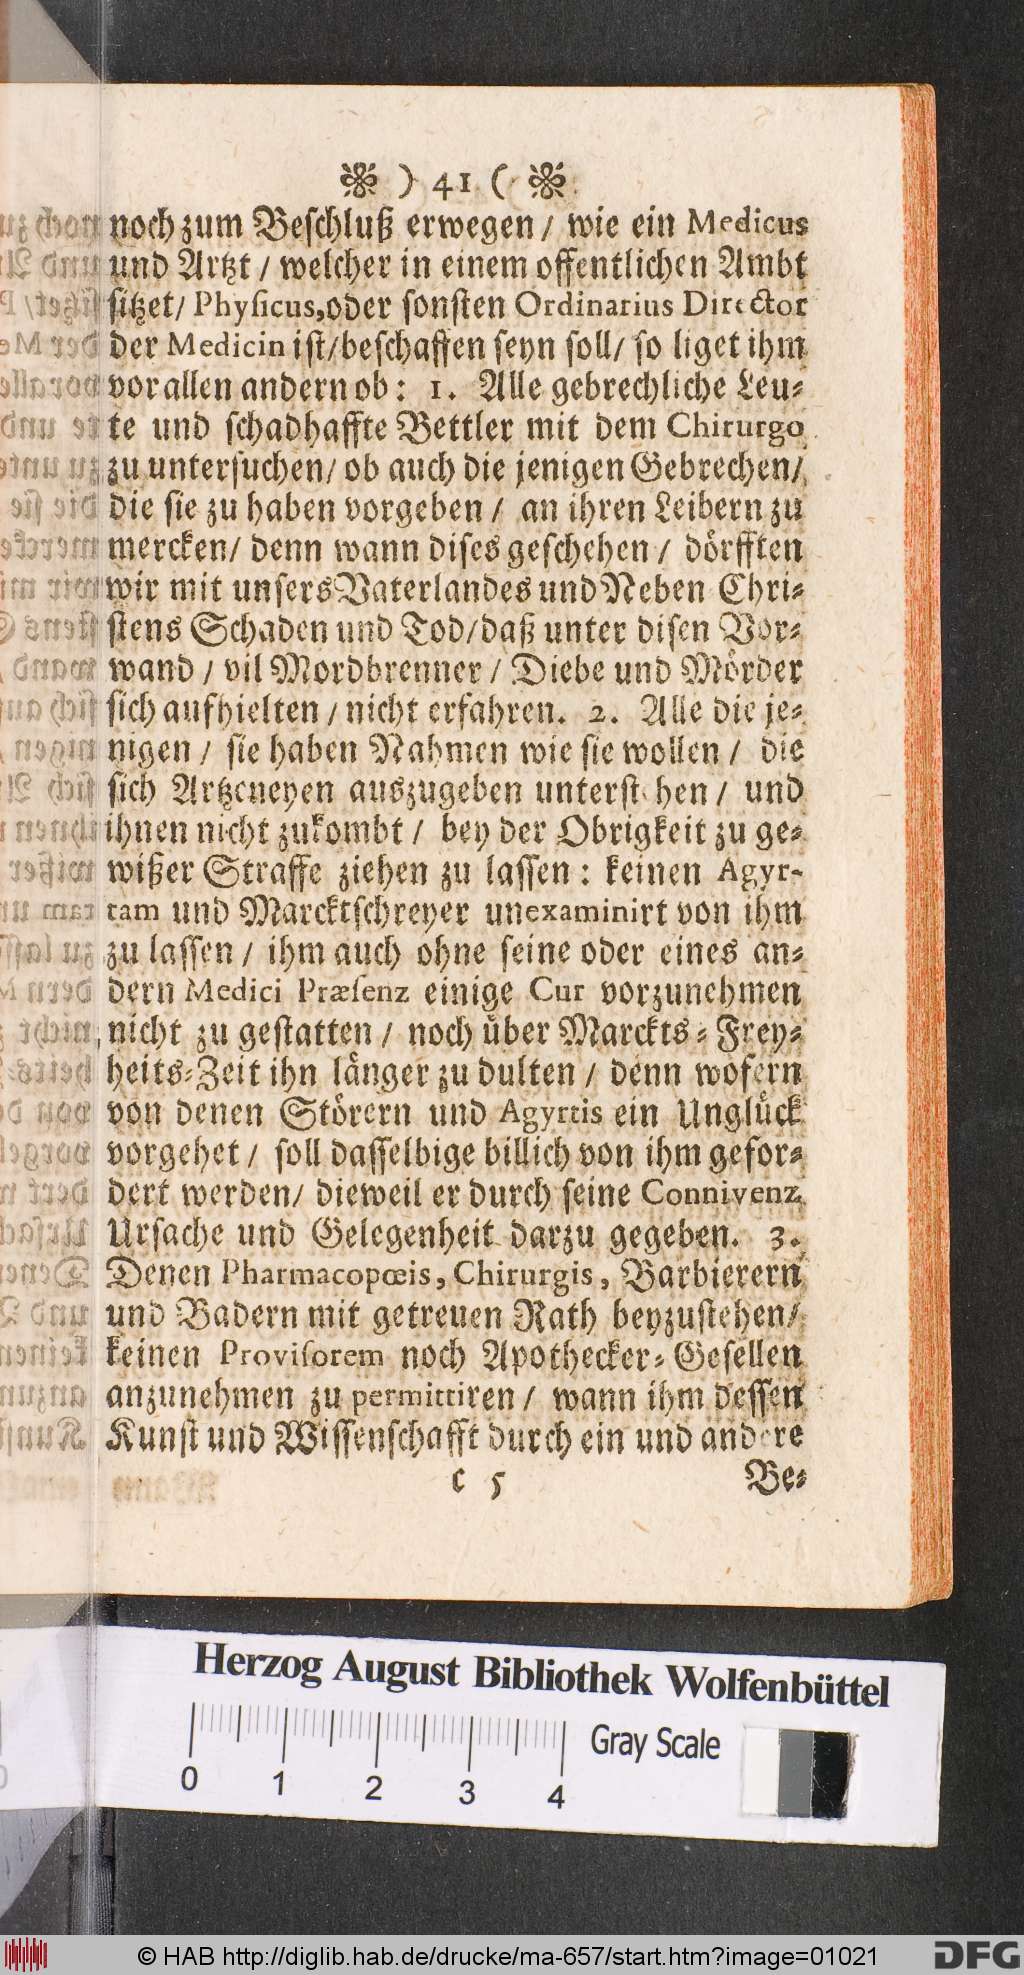 ) 41 (
noch zum Beschluß erwegen / wie ein Medicus
und Artzt / welcher in einem offentlichen Ambt
sitzet / Physicus, oder sonsten Ordinarius Director
der Medicin ist / beschaffen seyn soll / so liget ihm
vor allen andern ob : 1. Alle gebrechliche Leu-
te und schadhaffte Bettler mit dem Chirurgo
zu untersuchen / ob auch die jenigen Gebrechen /
die sie zu haben vorgeben / an ihren Leibern zu
mercken / denn wann dises geschehen / dörfften
wir mit unsers Vaterlandes und Neben Chri-
stens Schaden und Tod / daß unter disen Vor-
wand / vil Mordbrenner / Diebe und Mörder
sich aufhielten / nicht erfahren. 2. Alle die je-
nigen / sie haben Nahmen wie sie wollen / die
sich Artzeneyen auszugeben unterstehen / und
ihnen nicht zukombt / bey der Obrigkeit zu ge-
wißer Straffe ziehen zu lassen : keinen Agyr-
tam und Marcktschreyer unexaminirt von ihm
zu lassen / ihm auch ohne seine oder eines an-
dern Medici Præsenz einige Cur vorzunehmen
nicht zu gestatten / noch über Marckts-Frey-
heits-Zeit ihn länger zu dulten / denn wofern
von denen Störern und Agyrtis ein Unglück
vorgehet / soll dasselbige billich von ihm gefor-
dert werden / dieweil er durch seine Connivenz
Ursache und Gelegenheit darzu gegeben. 3.
Denen Pharmacopœis, Chirurgis, Barbierern
und Badern mit getreuen Rath beyzustehen /
keinen Provisorem noch Apothecker-Gesellen
anzunehmen zu permittiren / wann ihm dessen
Kunst und Wissenschafft durch ein und andere
C 5 Be-
Herzog August Bibliothek Wolfenbüttel
Gray Scale
0 1 2 3 4
© HAB http://diglib.hab.de/drucke/ma-657/start.htm?image=01021
DFG